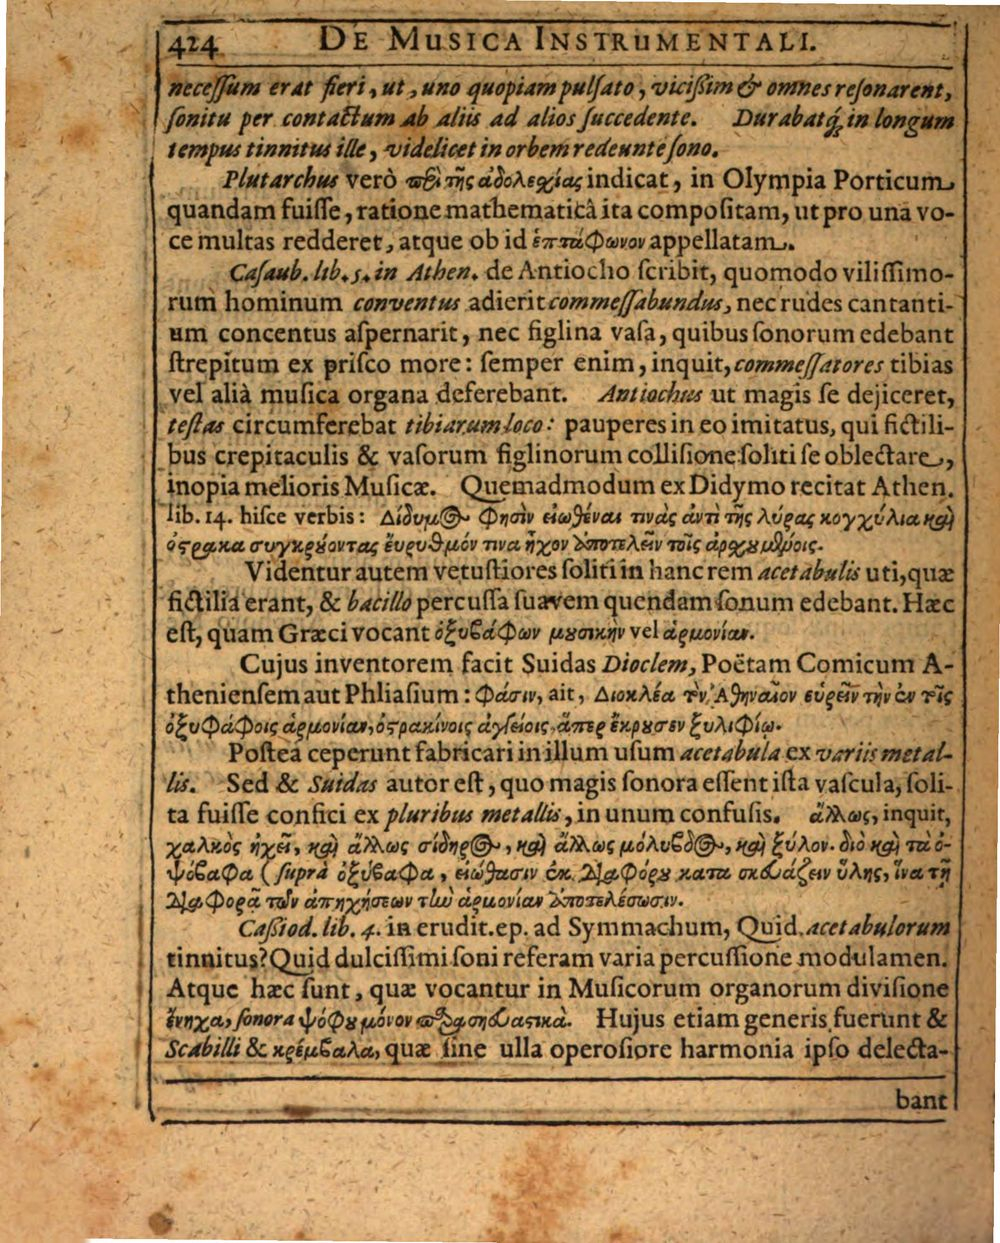 424 DE MUSICA INSTRUMENTALI.
necessum erat fieri, ut, uno quopiam pulsato, vicißim & omnes resonarent,
sonitu per contactum ab aliis ad alios succedente. Durabatq́; in longum
tempus tinnitus ille, videlicet in orbem redeunte sono.
Plutarchus verò περὶ τῆς ἀδολεχίας indicat, in Olympia Porticum
quandam fuisse, ratione mathematicâ ita compositam, ut pro una vo-
ce multas redderet, atque ob id ἑπτάφωνον appellatam.
Casaub. lib. 5. in Athen. de Antiocho scribit, quomodo vilissimo-
rum hominum conventus adierit commessabundus, nec rudes cantanti-
um concentus aspernarit, nec figlina vasa, quibus sonorum edebant
strepitum ex prisco more: semper enim, inquit, commessatores tibias
vel alia musica organa deferebant. Antiochus ut magis se dejiceret,
testas circumferebat tibiarum loco: pauperes in eo imitatus, qui fictili-
bus crepitaculis & vasorum figlinorum collisione soliti se oblectare,
inopia melioris Musicæ. Quemadmodum ex Didymo recitat Athen.
lib. 14. hisce verbis: Δίδυμος φησὶν εἰωθέναι τινὰς ἀντὶ τῆς λύρας κογχύλια καὶ
ὀστρακα συγκρούοντας ἔυρυθμόν τινα ἦχον ἀποτελεῖν τοῖς ἀρχουμένοις.
Videntur autem vetustiores soliti in hanc rem acetabulis uti, quæ
fictilia erant, & bacillo percussa suavem quendam sonum edebant. Hæc
est, quam Græci vocant ὀξυβάφων μουσικὴν vel ἁρμονίαν.
Cujus inventorem facit Suidas Dioclem, Poëtam Comicum A-
theniensem aut Phliasium: Φάσιν, ait, Διοκλέα τὸν Ἀθηναῖον εὑρεῖν τὴν ἐν τοῖς
ὀξυφάφοις ἁρμονίαν, ὀστρακίνοις ἀγγείοις, ἅπερ ἔκρουσεν ξυλιφίῳ.
Postea ceperunt fabricari in illum usum acetabula ex variis metal-
lis. Sed & Suidas autor est, quo magis sonora essent ista vascula, soli-
ta fuisse confici ex pluribus metallis, in unum confusis. ἄλλως, inquit,
χαλκὸς ἠχεῖ, καὶ ἄλλως σίδηρος, καὶ ἄλλως μόλυβδος, καὶ ξύλον. διὸ καὶ τὰ ὀ-
ψόβαφα (suprà ὀξύβαφα, εἰώθασιν ἐκ διαφόρου κατασκευάζειν ὕλης, ἵνα τῇ
διαφορᾷ τῶν ἀπηχήσεων τὴν ἁρμονίαν ἀποτελέσωσιν.
Caßiod. lib. 4. in erudit. ep. ad Symmachum, Quid acetabulorum
tinnitus? Quid dulcissimi soni referam varia percussione modulamen.
Atque hæc sunt, quæ vocantur in Musicorum organorum divisione
ἔνηχα, sonora ψόφου μόνον παρασκευαστικά. Hujus etiam generis fuerunt &
Scabilli & κρέμβαλα, quæ sine ulla operosiore harmonia ipso delecta-
bant